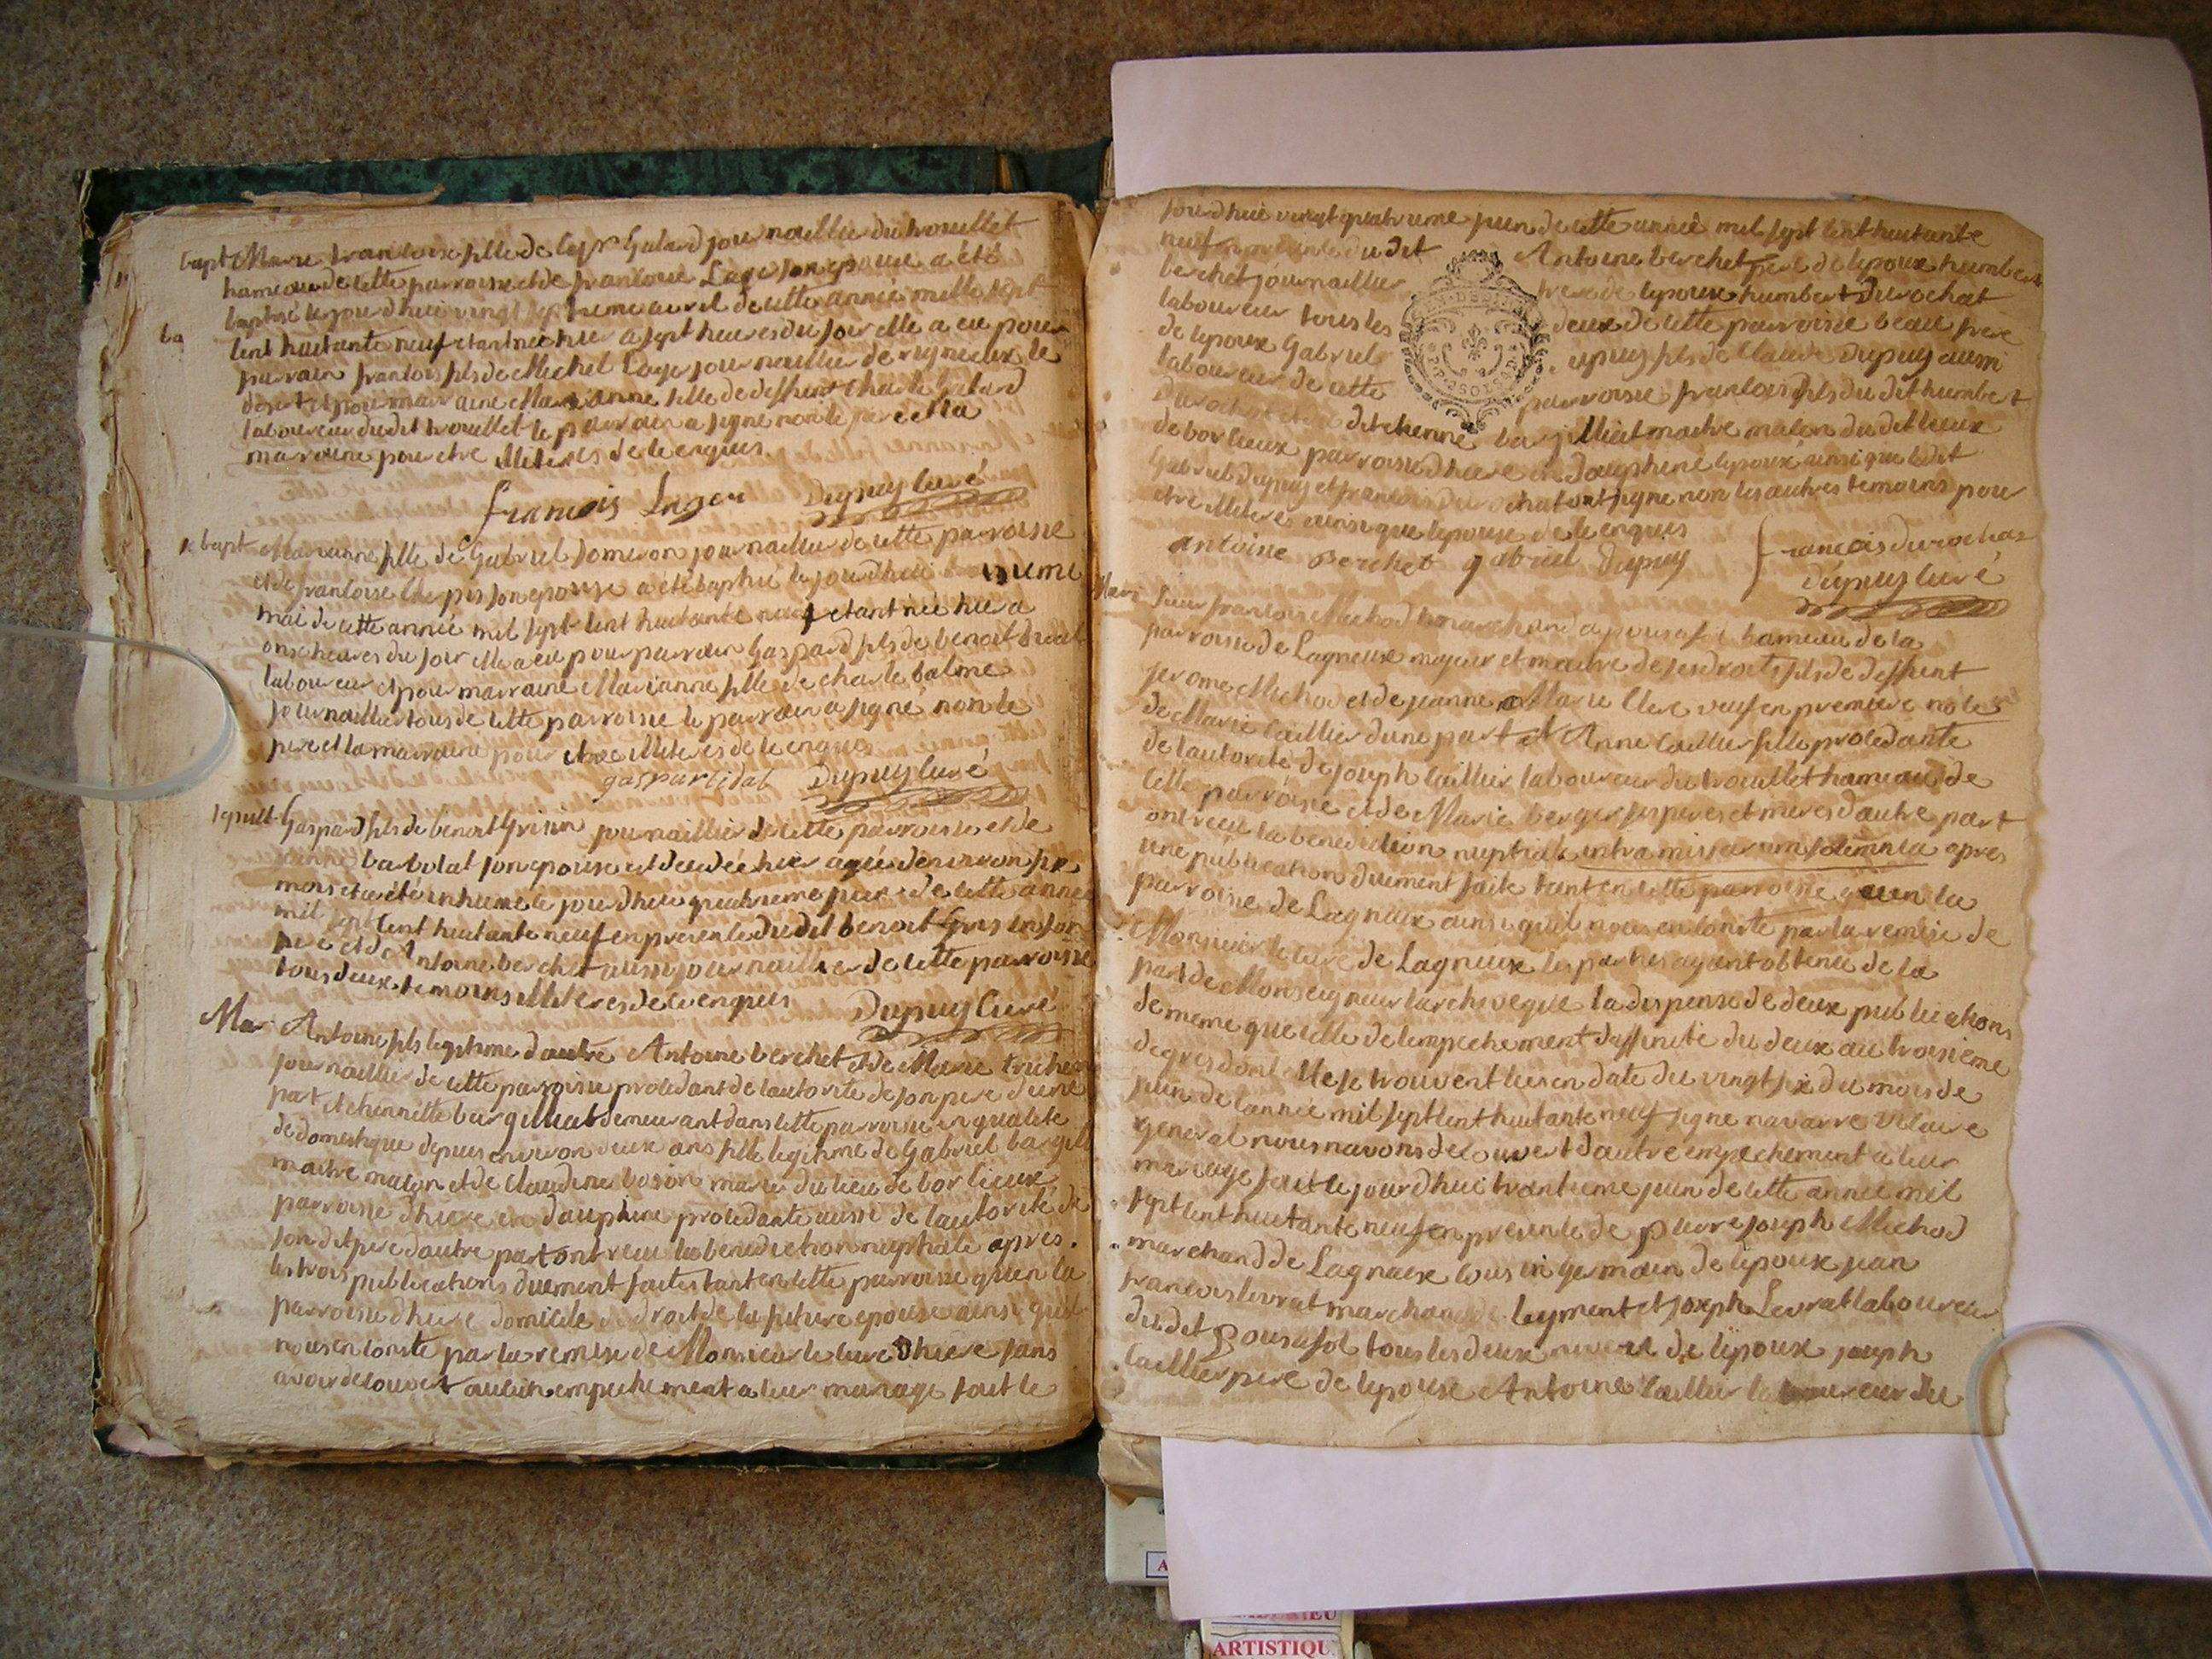 bapt Marie francoise fille de Galand journaillier du trouillet
hameau de cette parroisse et de francoise Lager son epouse a été
baptisé le jourdhuei vingt avril de cette année mille sept
cent huitante neuf etant née hier a sept heures du soir elle a eu pour
parrain francois fils de Michel Lager journaillier de rigneieux le
desert et pour marraine Marianne fille de deffunt Charle Galand
laboureur dudit trouillet le parrain a signé non le pere et la
marraine pour etre illiteres de ce enquis
francois Lager Dupuy curé
bapt Marianne fille de Gabriel journaillier de cette parroisse
et de francoise son epouse a été baptisé le jourdhuei
mai de cette année mil sept cent huitante neuf etant née hier a
onse heures du soir elle a eu pour parrain Gaspard fils de benoit
laboureur et pour marraine Marianne fille de charle balme
journaillier tous de cette parroisse le parrain a signé non le
pere et la marraine pour etre illiteres de ce enquis
Dupuy curé
sepult Gaspard fils de benoit Grisin journaillier de cette parroisse et de
barbolat son epouse est decedé hier agé denviron six
mois et a été inhumé le jourdhuei quatrieme juin de cette année
mil sept cent huitante neuf en presence dudit benoit Grisin son
pere et de Antoine berchet aussi journaillier de cette parroisse
tous deux temoins illiteres de ce enquis Dupuy curé
Mar Antoine fils legitime dautre Antoine berchet et de Marie
journaillier de cette parroisse procedant de lautorité de son pere dune
part et etiennette bargilliat demeurant dans cette parroisse en qualité
de domestique depuis environ deux ans fille legitime de Gabriel
maitre maçon et de Claudine boson mariés du lieu de borlieux
parroisse dhiere en dauphiné procedante aussi de lautorité de
son dit pere dautre part ont receu la benediction nuptiale apres
les trois publications duement faites tant en cette parroisse quen la
parroisse dhiere domicile de droit de la future epouse ainsi quil
nous en conste par la remise de Monsieur le curé Dhiere sans
avoir decouvert aucun empechement a leur mariage fait le
jourdhuei vingt quatrieme juin de cette année mil sept cent huitante
neuf en presence dudit Antoine berchet pere de lepoux humbert
berchet journaillier frere de lepoux humbert Durochat
laboureur tous les deux de cette parroisse beau frere
de lepoux Gabriel dupuy fils de Claude dupuy aussi
laboureur de cette parroisse francois fils du dit humbert
Durochat et de etienne bargilliat maitre maçon du dit lieux
de borlieux parroisse dhiere en Dauphiné lepoux ainsi que ledit
Gabriel dupuy et francois durochat ont signe non les autres temoins pour
etre illiteré ainsi que lepouse de ce enquis
antoine Berchet gabriel Dupuy francois durochat
dupuy curé
Mari Sieur francois Michod marchand a pousafol hameau de la
parroisse de Lagneux majeur et maitre de ses droits fils de deffunt
Jerome Michod et de jeanne Marie Clere veuf en premiere noces
de Marie Caillier dune part et Anne Caillier fille procedante
de lautorité de joseph Caillier laboureur du trouillet hameau de
cette parroisse et de Marie berger ses peres et meres dautre part
ont receu la benediction nuptiale intra missarum solemnia apres
une publication duement faite tant en cette parroisse quen la
parroisse de Lagneux ainsi quil nous en conste par la remise de
Monsieur le curé de Lagneux les parties ayant obtenue de la
part de Monseigneur larcheveque la dispense de deux publications
de meme que celle de lempechement daffinité du deux au troisieme
degres dont elle se trouvent lies en date du vingt six du mois de
juin de lannée mil sept cent huitante neuf signe navarre Vicaire
general nous navons decouvert dautre empechement a leur
mariage fait le jourdhuei trantieme juin de cette année mil
sept cent huitante neuf en presence de pierre joseph Michod
marchand de Lagneux cousin germain de lepoux jean
francois Levrat marchand de leyment et joseph Levrat laboureur
du dit Pousafol tous les deux neveux de lepoux joseph
Caillier pere de lepouse Antoine Caillier laboureur du
ARTISTIQU